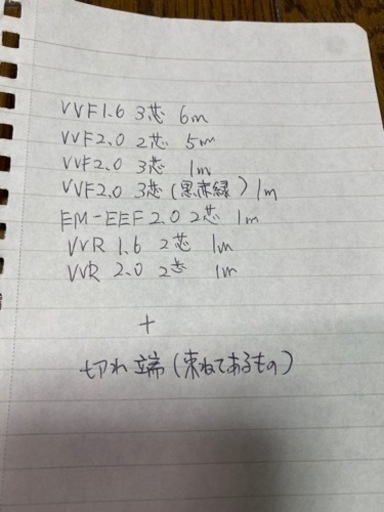 VVF1.6 3芯 6m
VVF2.0 2芯 5m
VVF2.0 3芯 1m
VVF2.0 3芯(黒赤緑)1m
EM-EEF2.0 2芯 1m
VVR 1.6 2芯 1m
VVR 2.0 2芯 1m
+
切れ端(束ねてあるもの)